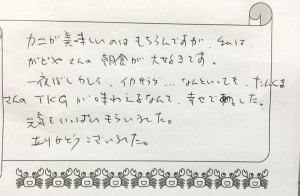 カニが美味しいのはもちろんですが、私は、
かどやさんの朝食が大好きです。
一夜ぼしかれい、イカサラダ…なんといっても、たんくま
さんのTKGが味わえるなんて、幸せでした。
元気をいっぱいもらいました。
ありがとうございました。